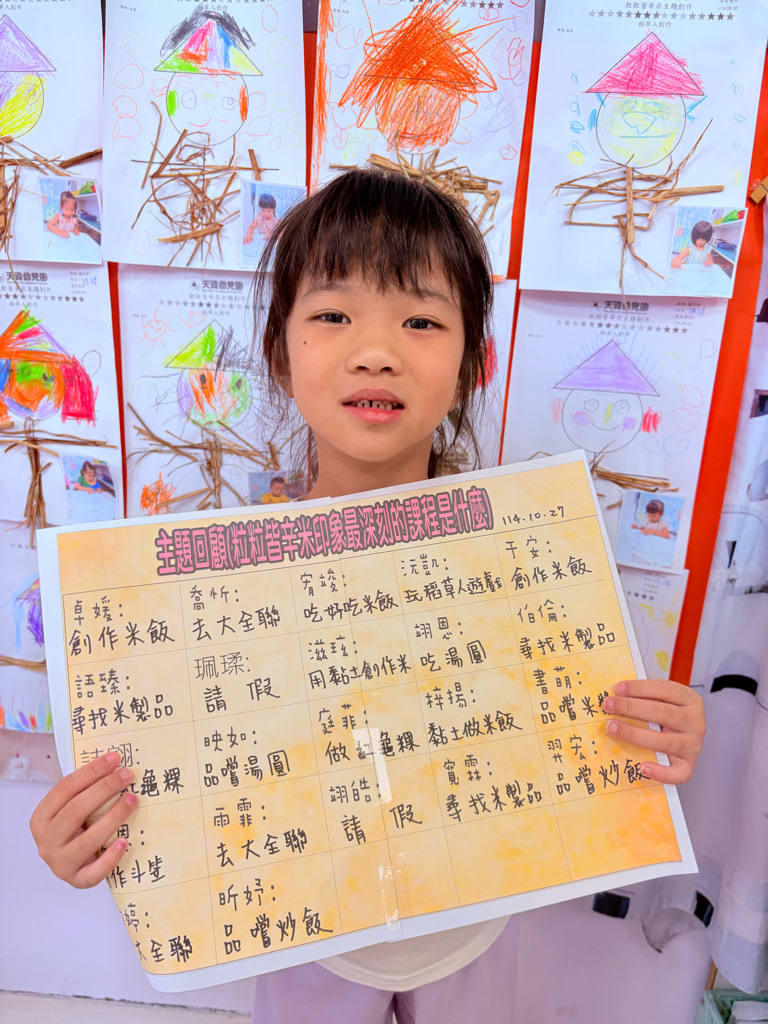 粒粒皆辛米主題創作
稻草人創作
天資幼兒園
粒粒皆辛米主題創作
稻草人創作
天資幼兒園
主題回顧(粒粒皆辛米印象最深刻的課程是什麼)
114.10.27
卓媛:
創作米飯
喬忻:
去大全聯
宥竣:
吃好吃米飯
沅凱:
玩稻草人遊戲
于安:
創作米飯
語臻:
尋找米製品
珮瑈:
請 假
滋玹:
用黏土創作米
翊恩:
吃湯圓
伯倫:
尋找米製品
翊:
龜粿
映如:
品嚐湯圓
庭菲:
做紅龜粿
梓揚:
黏土做米飯
書萌:
品嚐米
恩:
作斗笠
雨霏:
去大全聯
翊皓:
請 假
寬霖:
尋找米製品
羿宏:
品嚐炒飯
婷:
大全聯
昕妤:
品嚐炒飯